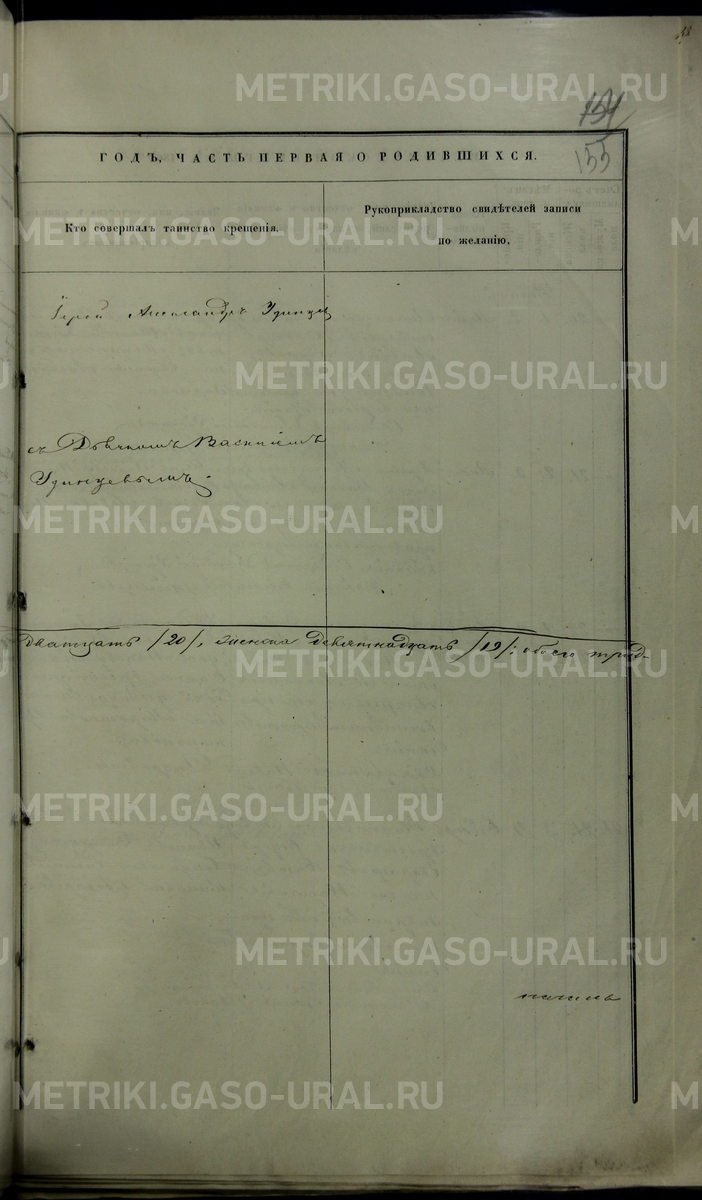 METRIKI.GASO-URAL.RU
154
155
ГОДЪ, ЧАСТЬ ПЕРВАЯ О РОДИВШИХСЯ.
Кто совершалъ таинство крещенія.
Рукоприкладство свидѣтелей записи
по желанію.
METRIKI.GASO-URAL.RU
Іерей Александръ Удинцев
METRIKI.GASO-URAL.RU
съ Дьячкомъ Василіемъ
Удинцевымъ.
METRIKI.GASO-URAL.RU
двадцать /20/, женска девятнадцать /19/: обоего трид-
METRIKI.GASO-URAL.RU
METRIKI.GASO-URAL.RU
METRIKI.GASO-URAL.RU
METRIKI.GASO-URAL.RU